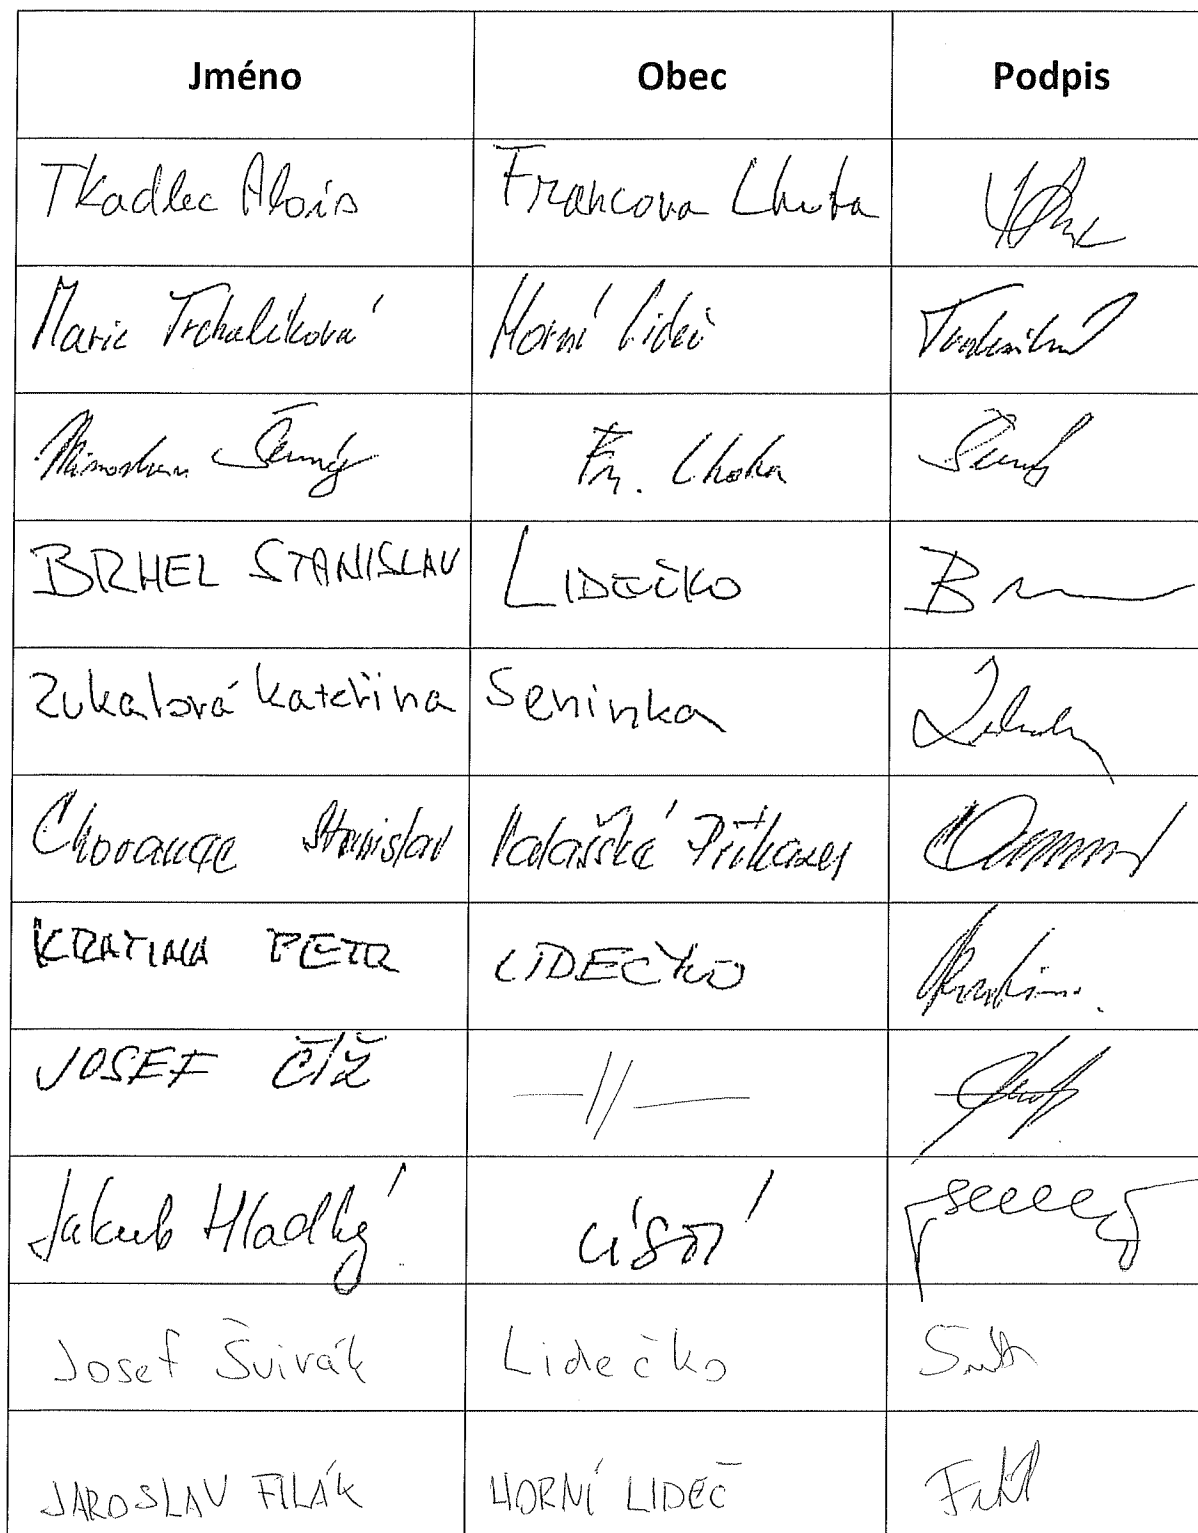 Jméno Obec Podpis
Tkadlec Alois Francova Lhota
Marie Trchalíková Horní Lideč
Miroslav Černý Fr. Lhota
BRHEL STANISLAV LIDEČKO
Zukalová Kateřina Seninka
Chovanec Stanislav Valašské Příkazy
KRATINA PETR LIDEČKO
JOSEF ČÍŽ —//—
Jakub Hladký ÚSTÍ
Josef Švirák Lidečko
JAROSLAV FILÁK HORNÍ LIDEČ